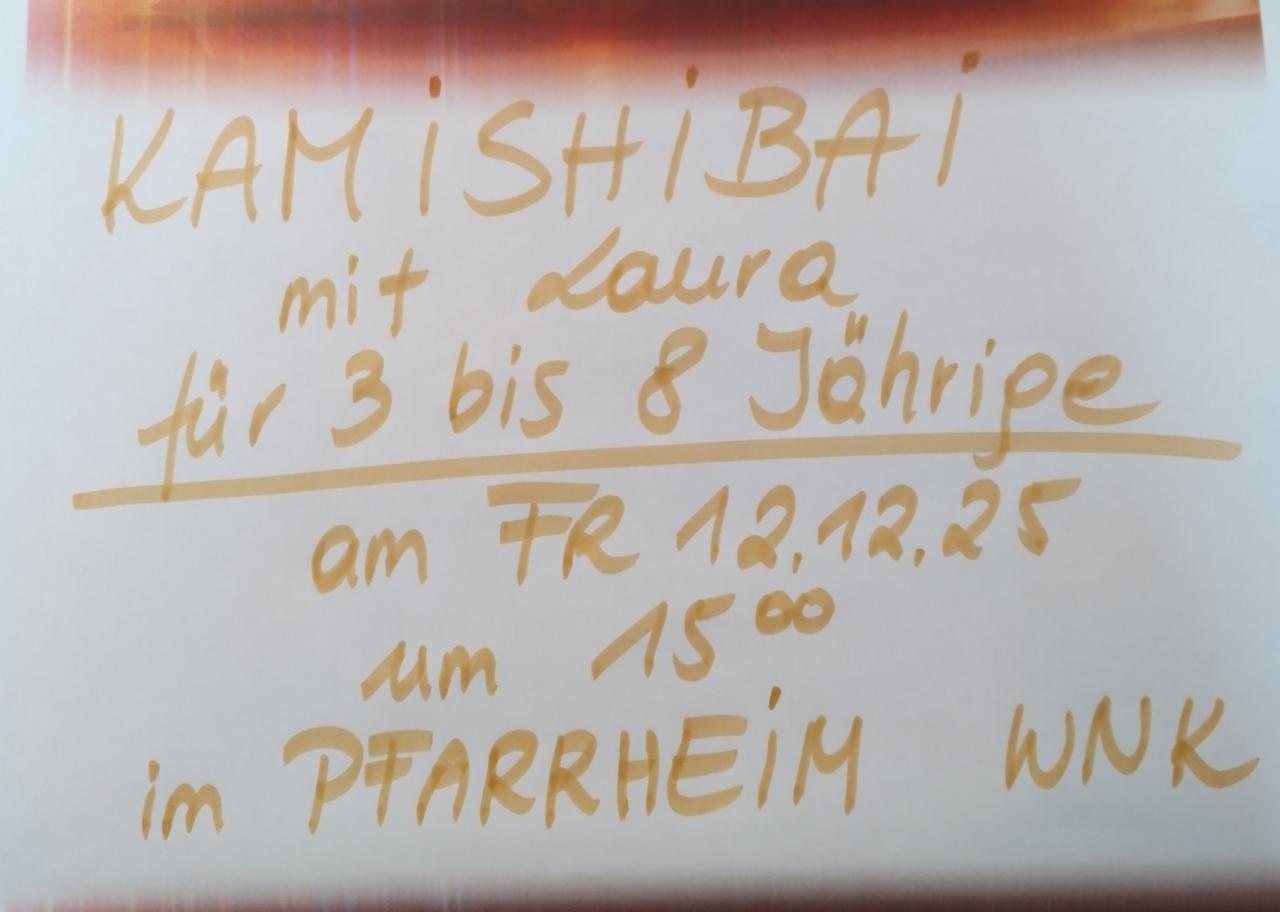 KAMiSHiBAi
mit Laura
für 3 bis 8 Jährige
am FR 12.12.25
um 15⁰⁰
im PFARRHEiM WNK